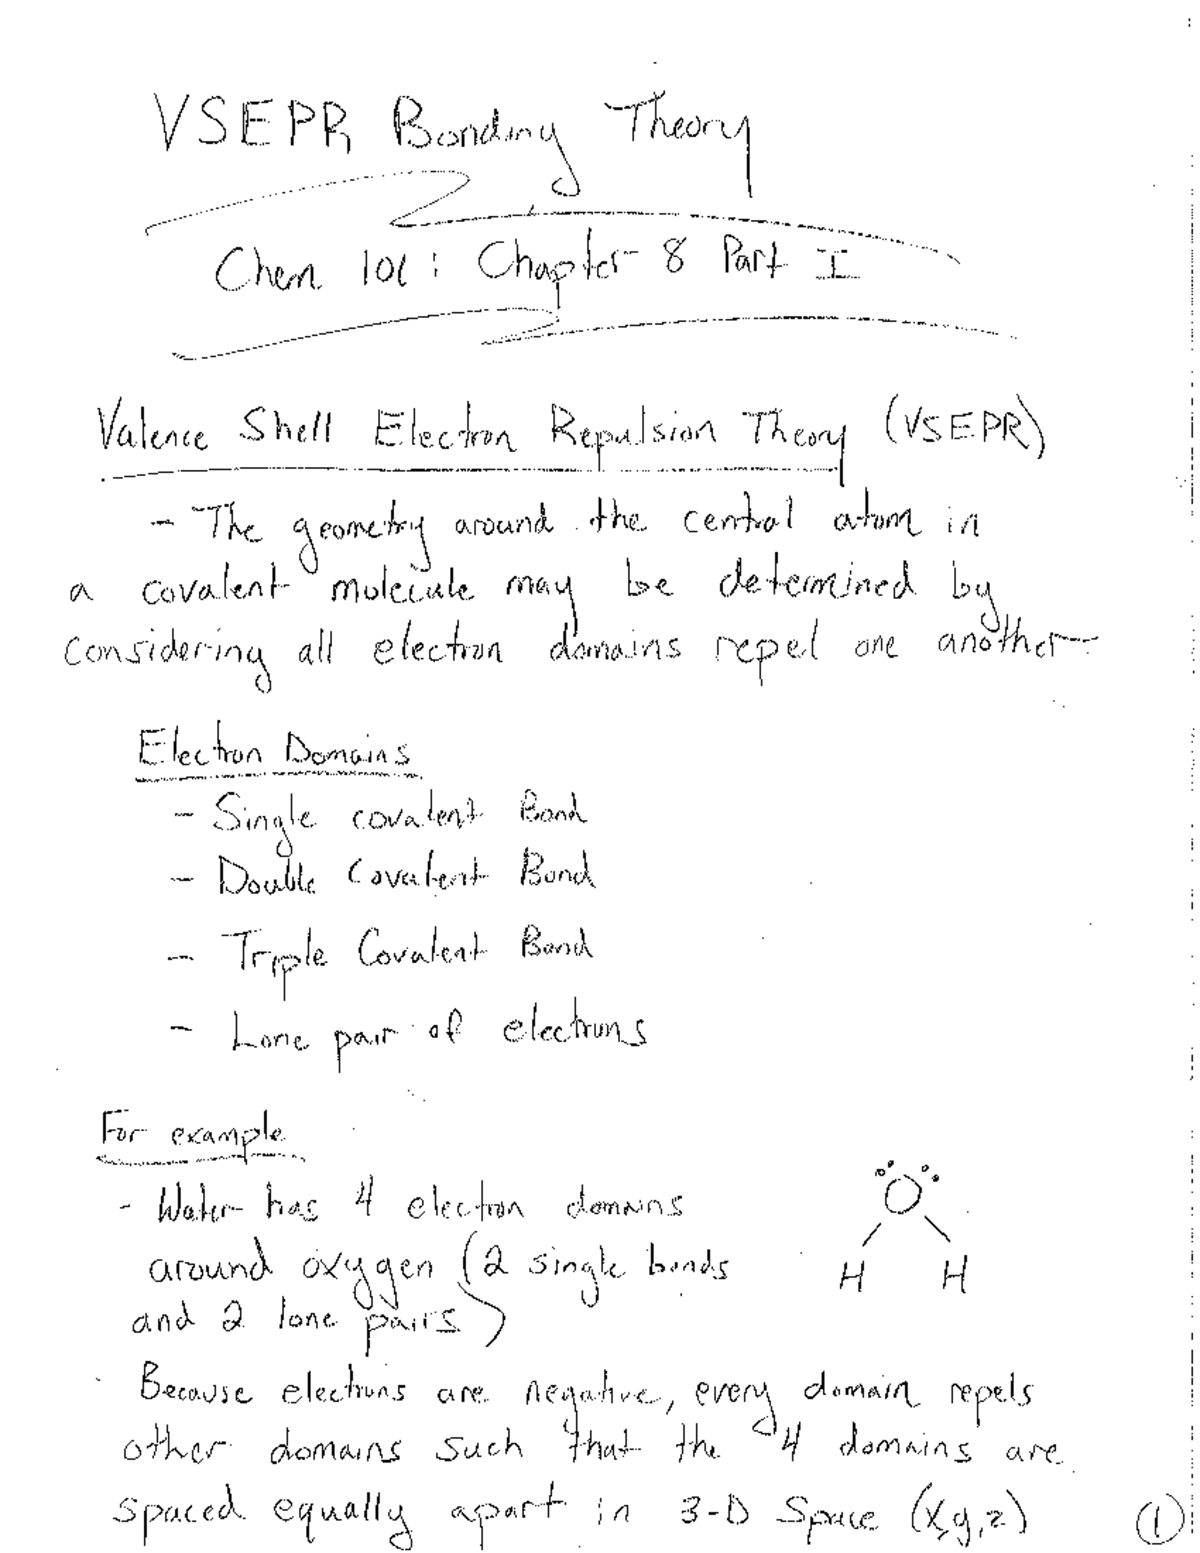 VSEPR Bonding Theory
Chem 101: Chapter 8 Part I
Valence Shell Electron Repulsion Theory (VSEPR)
- The geometry around the central atom in
a covalent molecule may be determined by
considering all electron domains repel one another
Electron Domains
- Single covalent Bond
- Double Covalent Bond
- Triple Covalent Bond
- Lone pair of electrons
For example
- Water has 4 electron domains
around oxygen (2 single bonds
and 2 lone pairs)
O
H H
Because electrons are negative, every domain repels
other domains such that the 4 domains are
spaced equally apart in 3-D Space (x,y,z)
1